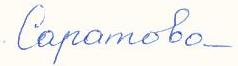 Саратова